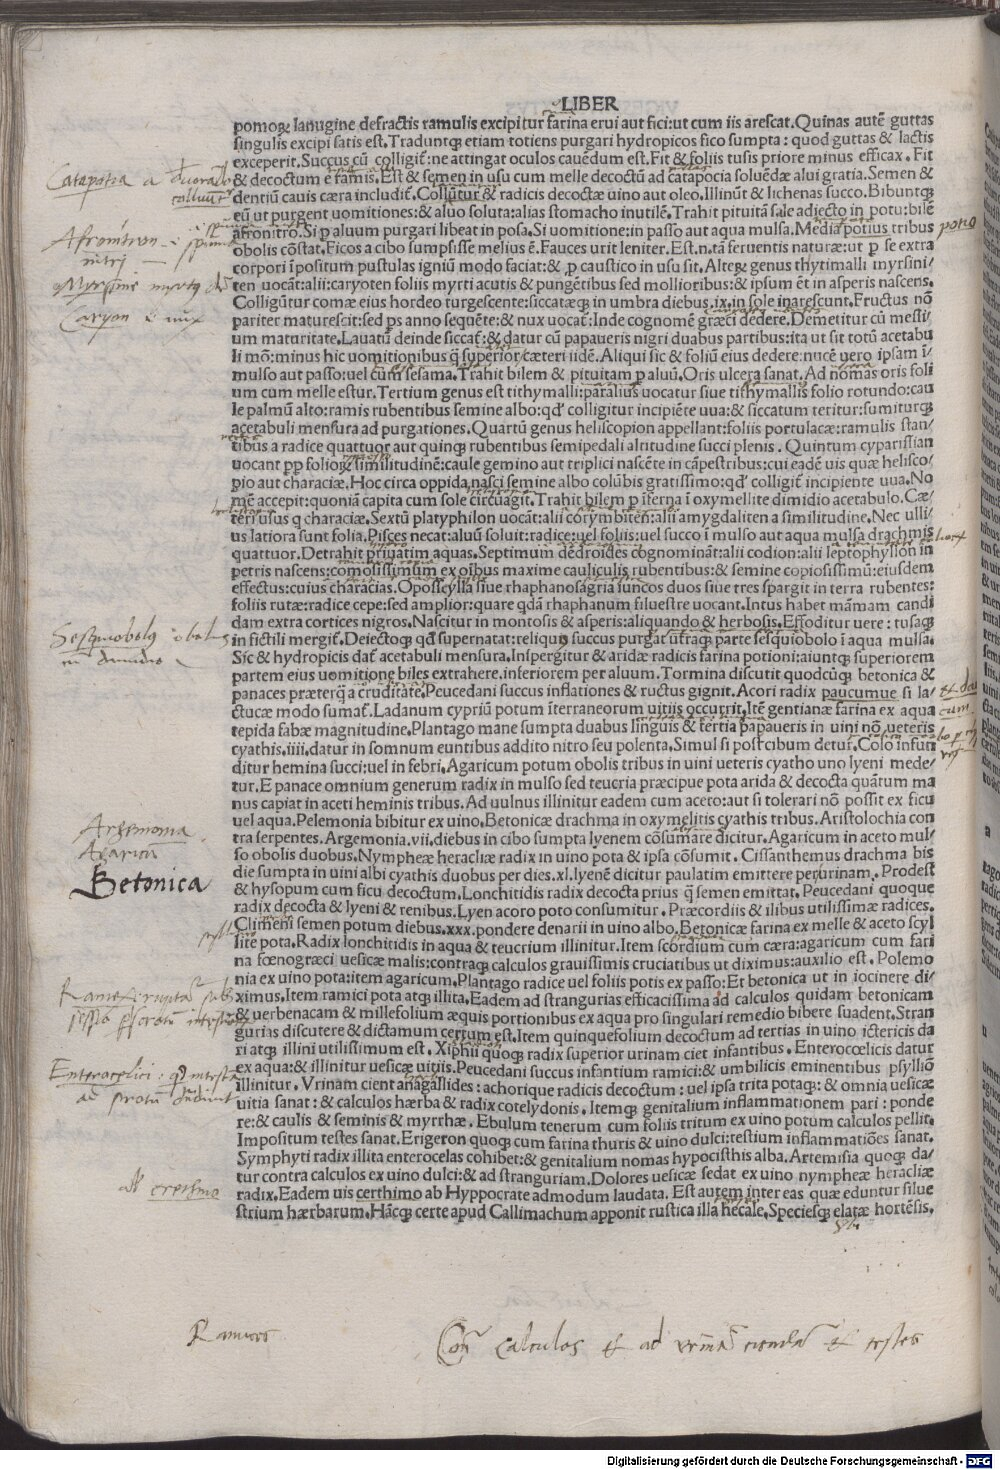 LIBER
pomoꝝ lanugine defractis ramulis excipitur farina erui aut fici:ut cum iis arescat.Quinas autē guttas
singulis excipi satis est.Traduntqꝫ etiam totiens purgari hydropicos fico sumpta: quod guttas & lactis
exceperit.Succus cū colligit᷑:ne attingat oculos cauēdum est.Fit & foliis tusis priore minus efficax. Fit
& decoctum e ramis.Est & semen in usu cum melle decoctū ad catapocia soluēdæ alui gratia.Semen &
dentiū cauis cæra includit᷑.Colluūtur & radicis decoctæ uino aut oleo.Illinūt & lichenas succo.Bibuntqꝫ
eū ut purgent uomitiones:& aluo soluta:alias stomacho inutilē.Trahit pituitā sale adiecto in potu:bilē
afronitro.Si p aluum purgari libeat in posa.Si uomitione:in passo aut aqua mulsa.Media potius tribus
obolis cōstat.Ficos a cibo sumpsisse melius ē.Fauces urit leniter. Est.n.tā feruentis naturæ:ut p se extra
corpori īpositum pustulas igniū modo faciat:& p caustico in usu sit.Alteꝝ genus thytimalli myrsini/
ten uocāt:alii:caryoten foliis myrti acutis & pungētibus sed mollioribus:& ipsum ēt in asperis nascens.
Colligūtur comæ eius hordeo turgescente:siccatæqꝫ in umbra diebus.ix.in sole inarescunt.Fructus nō
pariter maturescit:sed ps anno sequēte:& nux uocat᷑:Inde cognomē græci dedere.Demetitur cū messi/
um maturitate.Lauatū deinde siccat᷑:& datur cū papaueris nigri duabus partibus:ita ut sit totū acetabu
li mō:minus hic uomitionibus q̄ superior/cæteri iidē. Aliqui sic & foliū eius dedere:nucē uero ipsam ī
mulso aut passo:uel cum sesama.Trahit bilem & pituitam p aluū.Oris ulcera sanat. Ad nomas oris foli
um cum melle estur.Tertium genus est tithymalli:paralius uocatur siue tithymallis folio rotundo:cau
le palmū alto:ramis rubentibus semine albo:qd' colligitur incipiēte uua:& siccatum teritur:sumiturqꝫ
acetabuli mensura ad purgationes. Quartū genus heliscopion appellant:foliis portulacæ:ramulis stan/
tibus a radice quattuor aut quinqꝫ rubentibus semipedali altitudine succi plenis . Quintum cyparissian
uocant pp folioꝝ similitudinē:caule gemino aut triplici nascēte in cāpestribus:cui eadē uis quæ helisco/
pio aut characiæ.Hoc circa oppida nasci semine albo colūbis gratissimo:qd' colligit᷑ incipiente uua. No
mē accepit:quoniā capita cum sole circūagit. Trahit bilem p īferna ī oxymellite dimidio acetabulo. Cæ/
teri usus q characiæ.Sextū platyphilon uocāt:alii corymbiten:alii amygdaliten a similitudine. Nec ulli/
us latiora sunt folia.Pisces necat:aluū soluit:radice:uel foliis:uel succo ī mulso aut aqua mulsa drachmis
quattuor. Detrahit priuatim aquas.Septimum dēdroides cognomināt:alii codion:alii leptophyllon in
petris nascens:comosissimum ex oībus maxime cauliculis rubentibus:& semine copiosissimū:eiusdem
effectus:cuius characias.Oposscylla siue rhaphanosagria iuncos duos siue tres spargit in terra rubentes:
foliis rutæ:radice cepe:sed amplior:quare qdā rhaphanum siluestre uocant.Intus habet māmam candi
dam extra cortices nigros.Nascitur in montosis & asperis:aliquando & herbosis.Effoditur uere: tusaqꝫ
in fictili mergit᷑.Deiectoqꝫ qd supernatat:reliquꝰ succus purgat utraqꝫ parte sesquiobolo ī aqua mulsa.
Sic & hydropicis dat᷑ acetabuli mensura.Inspergitur & aridæ radicis farina potioni:aiuntqꝫ superiorem
partem eius uomitione biles extrahere.inferiorem per aluum. Tormina discutit quodcūqꝫ betonica &
panaces præterq̄ a cruditate.Peucedani succus inflationes & ructus gignit. Acori radix paucumue si la/
ctucæ modo sumat᷑.Ladanum cypriū potum īterraneorum uitiis occurrit.Itē gentianæ farina ex aqua
tepida fabæ magnitudine.Plantago mane sumpta duabus linguis & tertia papaueris in uini nō ueteris
cyathis.iiii.datur in somnum euntibus addito nitro seu polenta. Simul si post cibum detur.Colo infun
ditur hemina succi:uel in febri.Agaricum potum obolis tribus in uini ueteris cyatho uno lyeni mede/
tur.E panace omnium generum radix in mulso sed teucria præcipue pota arida & decocta quātum ma
nus capiat in aceti heminis tribus.Ad uulnus illinitur eadem cum aceto:aut si tolerari nō possit ex ficu
uel aqua.Pelemonia bibitur ex uino.Betonicæ drachma in oxymelitis cyathis tribus. Aristolochia con
tra serpentes. Argemonia.vii.diebus in cibo sumpta lyenem cōsumare dicitur. Agaricum in aceto mul/
so obolis duobus.Nympheæ heracliæ radix in uino pota & ipsa cōsumit. Cissanthemus drachma bis
die sumpta in uini albi cyathis duobus per dies.xl.lyenē dicitur paulatim emittere per urinam. Prodest
& hysopum cum ficu decoctum.Lonchitidis radix decocta prius q̄ semen emittat. Peucedani quoque
radix decocta & lyeni & renibus. Lyen acoro poto consumitur . Præcordiis & ilibus utilissimæ radices.
Climeni semen potum diebus.xxx.pondere denarii in uino albo. Betonicæ farina ex melle & aceto scyl
lite pota.Radix lonchitidis in aqua & teucrium illinitur. Item scordium cum cæra:agaricum cum fari
na fœnogræci uesicæ malis:contraqꝫ calculos grauissimis cruciatibus ut diximus:auxilio est . Polemo
nia ex uino pota:item agaricum.Plantago radice uel foliis potis ex passo:Et betonica ut in iocinere di/
ximus.Item ramici pota atqꝫ illita. Eadem ad strangurias efficacissima ad calculos quidam betonicam
& uerbenacam & millefolium æquis portionibus ex aqua pro singulari remedio bibere suadent.Stran
gurias discutere & dictamum certum est.Item quinquefolium decoctum ad tertias in uino ictericis da
ri atqꝫ illini utilissimum est . Xiphii quoqꝫ radix superior urinam ciet infantibus. Enterocœlicis datur
ex aqua:& illinitur uesicæ uitiis.Peucedani succus infantium ramici:& umbilicis eminentibus psylliō
illinitur . Vrinam cient anagallides : achorique radicis decoctum : uel ipsa trita potaqꝫ: & omnia uesicæ
uitia sanat : & calculos hærba & radix cotelydonis. Itemqꝫ genitalium inflammationem pari : ponde
re:& caulis & seminis & myrrhæ. Ebulum tenerum cum foliis tritum ex uino potum calculos pellit.
Impositum testes sanat. Erigeron quoqꝫ cum farina thuris & uino dulci:testium inflammatiōes sanat.
Symphyti radix illita enterocelas cohibet:& genitalium nomas hypocisthis alba. Artemisia quoqꝫ da/
tur contra calculos ex uino dulci:& ad stranguriam. Dolores uesicæ sedat ex uino nympheæ heracliæ
radix.Eadem uis certhimo ab Hyppocrate admodum laudata. Est autem inter eas quæ eduntur silue
strium hærbarum.Hācqꝫ certe apud Callimachum apponit rustica illa hecale.Speciesqꝫ elatæ hortēsis.
potio
Argemonia
Agaricū
Betonica
ab erethmo
Ramices
Digitalisierung gefördert durch die Deutsche Forschungsgemeinschaft - DFG